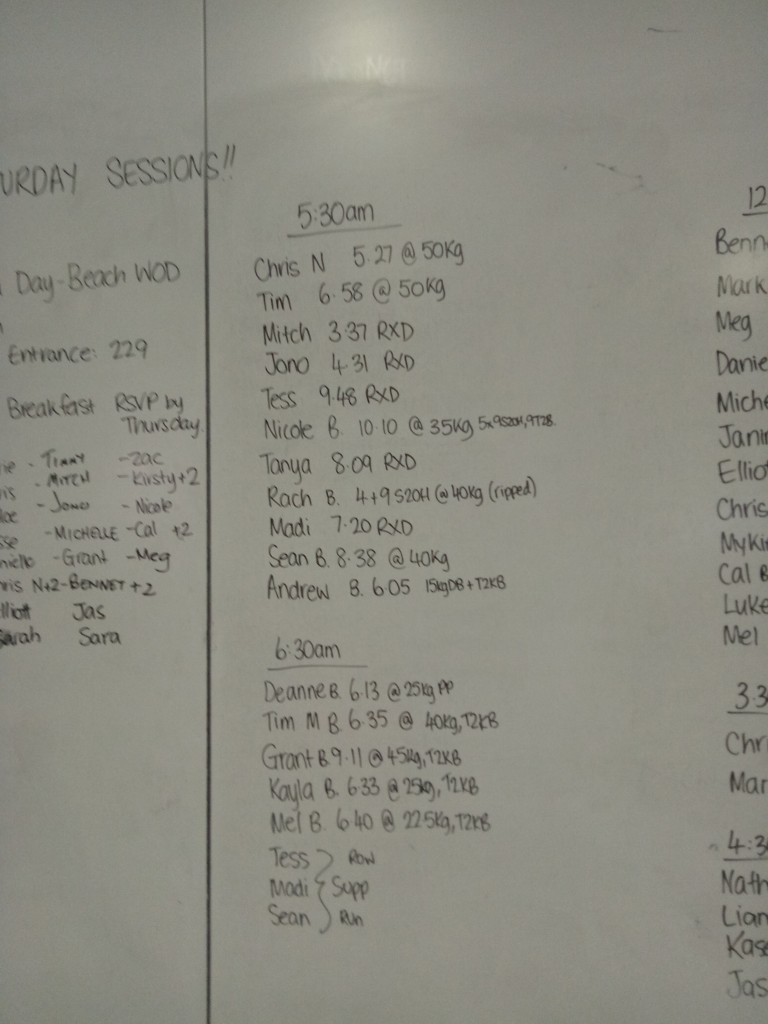 URDAY SESSIONS!!
Day-Beach WOD
Entrance: 229
Breakfast RSVP by
Thursday.
- Timmy - Zac
- MITCH - Kirsty+2
- Jono - Nicole
- MICHELLE - Cal +2
- Grant - Meg
N+2 - BENNET +2
Jas
Sara
5:30am
Chris N 5.27 @ 50kg
Tim 6.58 @ 50kg
Mitch 3.37 RXD
Jono 4.31 RXD
Tess 9.48 RXD
Nicole B. 10.10 @ 35kg 5x9S2OH, 9T2B.
Tanya 8.09 RXD
Rach B. 4+9 S2OH @ 40kg (ripped)
Madi 7.20 RXD
Sean B. 8.38 @ 40kg
Andrew B. 6.05 15kgDB + T2KB
6:30am
Deanne B. 6.13 @ 25kg PP
Tim M B. 6.35 @ 40kg, T2KB
Grant B 9.11 @ 45kg, T2KB
Kayla B. 6.33 @ 25kg, T2KB
Mel B. 6.40 @ 22.5kg, T2KB
Tess } Row
Madi } Supp
Sean } Run
12
Benn
Mark
Meg
Danie
Miche
Janin
Ellio
Chris
Myki
Cal B
Luke
Mel
3.3
Chr
Mar
4:3
Nath
Lian
Kas
Jas